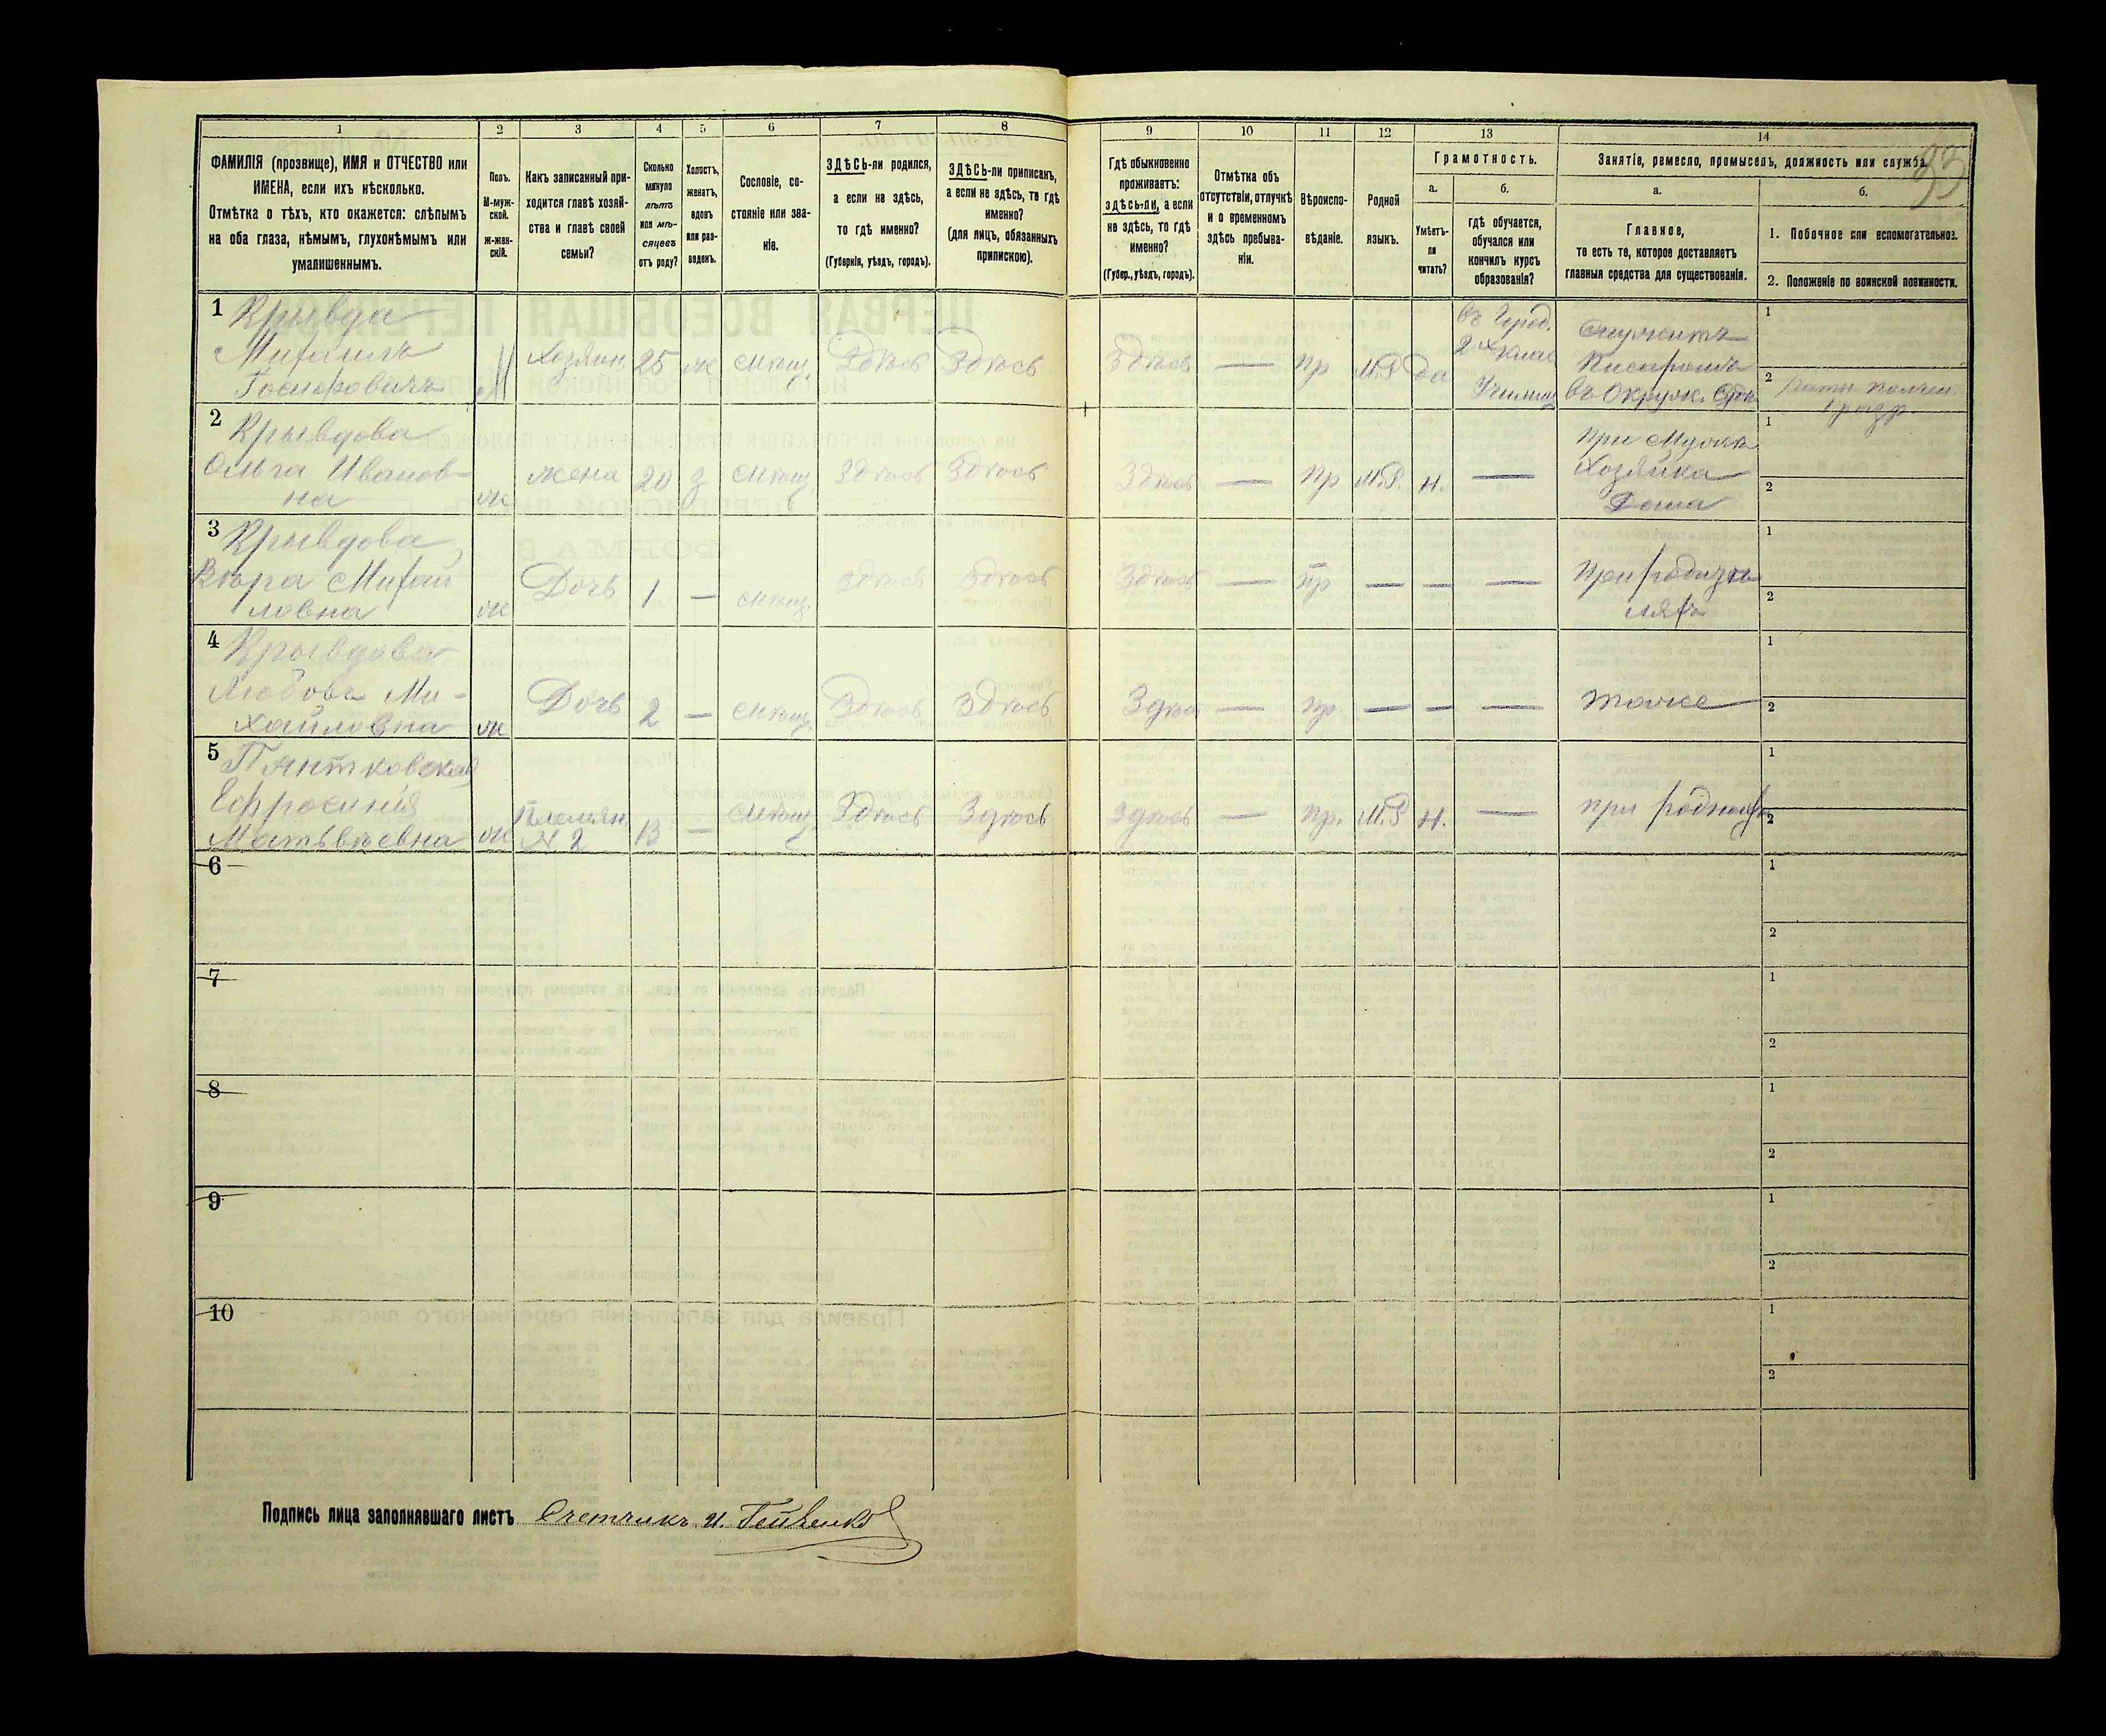 93
1 2 3 4 5 6 7 8 9 10 11 12 13 14
ФАМИЛІЯ (прозвище), ИМЯ и ОТЧЕСТВО или
ИМЕНА, если ихъ нѣсколько.
Отмѣтка о тѣхъ, кто окажется: слѣпымъ
на оба глаза, нѣмымъ, глухонѣмымъ или
умалишеннымъ.
Полъ.
М-муж-
ской.
Ж-жен-
скій.
Какъ записанный при-
ходится главѣ хозяй-
ства и главѣ своей
семьи?
Сколько
минуло
лѣтъ
или мѣ-
сяцевъ
отъ роду?
Холостъ,
женатъ,
вдовъ
или раз-
веденъ.
Сословіе, со-
стояніе или зва-
ніе.
ЗДѢСЬ-ли родился,
а если не здѣсь,
то гдѣ именно?
(Губернія, уѣздъ, городъ).
ЗДѢСЬ-ли приписанъ,
а если не здѣсь, то гдѣ
именно?
(для лицъ, обязанныхъ
припискою).
Гдѣ обыкновенно
проживаетъ:
здѣсь-ли, а если
не здѣсь, то гдѣ
именно?
(Губер., уѣздъ, городъ).
Отмѣтка объ
отсутствіи, отлучкѣ
и о временномъ
здѣсь пребыва-
ніи.
Вѣроиспо-
вѣданіе.
Родной
языкъ.
Грамотность.
а.
Умѣетъ-
ли
читать?
б.
гдѣ обучается,
обучался или
кончилъ курсъ
образованія?
Занятіе, ремесло, промыселъ, должность или служба.
а.
Главное,
то есть то, которое доставляетъ
главныя средства для существованія.
б.
1. Побочное или вспомогательное.
2. Положеніе по воинской повинности.
1 Крывда
Михаилъ
Іосифовичъ
М
Хозяин
25
ж
Мѣщ.
Здѣсь
Здѣсь
Здѣсь
—
Пр
М.Р
да
въ Город.
2х клас
Училищ
Служитъ
Писаромъ
въ Окруж. Судѣ
1
2
1 разр.
2 Крывдова
Ольга Иванов-
на
ж
жена
20
з
Мѣщ.
Здѣсь
Здѣсь
Здѣсь
—
Пр
М.Р.
н.
—
При Мужѣ
Хозяйка
Дома
1
2
3 Крывдова
Вѣра Михай
ловна
ж
Дочь
1
—
Мѣщ.
Здѣсь
Здѣсь
Здѣсь
—
Пр
—
—
—
При родите
ляхъ
1
2
4 Крывдова
Любовь Ми-
хайловна
ж
Дочь
2
—
Мѣщ.
Здѣсь
Здѣсь
Здѣсь
—
Пр.
—
—
—
тоже
1
2
5
Ефросинія
Матьвѣевна
ж
Племян.
№ 2
13
—
Мѣщ.
Здѣсь
Здѣсь
Здѣсь
—
Пр.
М.Р
н.
—
при родных
1
2
6
1
2
7
1
2
8
1
2
9
1
2
10
1
2
Подпись лица заполнявшаго листъ Счетчикъ И.